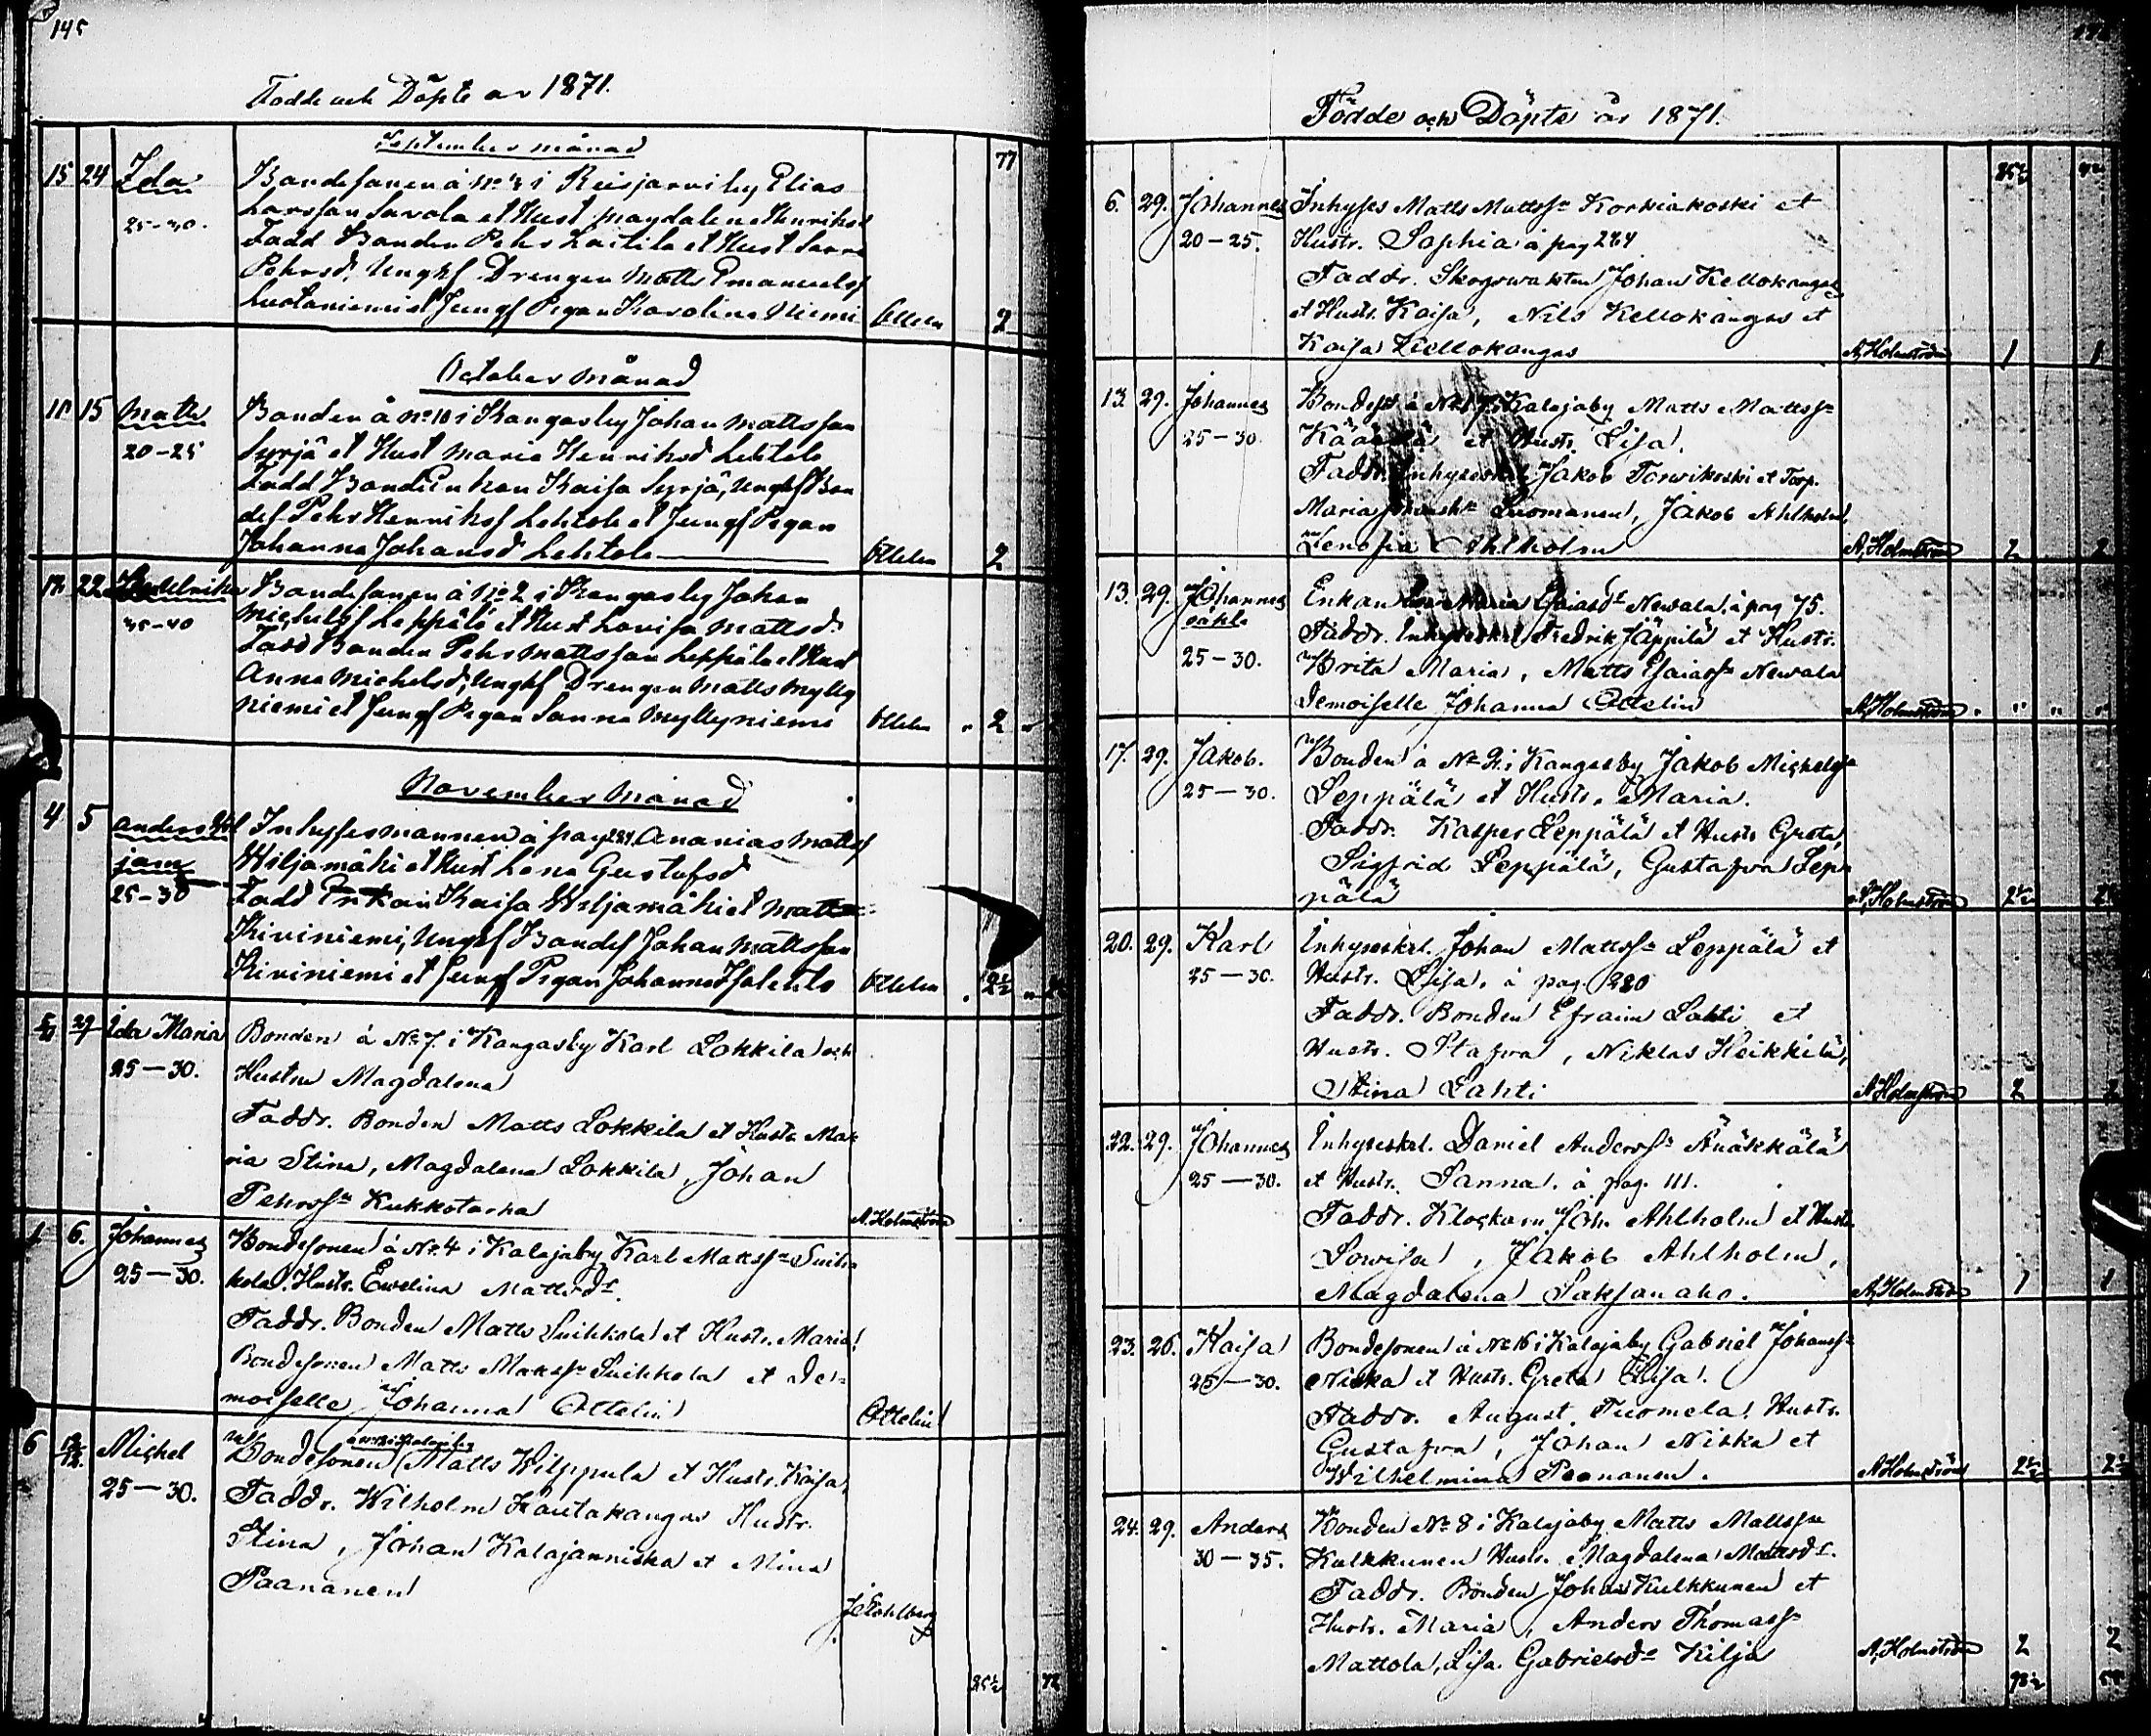 145
Födde och Döpte år 1871.
September månad
77
15 24 Ida Bondesonen å No 3 i Reisjärvi by Elias
25-30. Larsson Savola et Hust Magdalena Henriksd
Fadd Bonden Pehr Laitila et Hust
Pehrsd, Unghf Drengen Matts Emanuelss
et Jungf Pigan Karolina Niemi Ottelin 2
October månad
15 Matts Bonden å No 10 i Kangasby Johan Mattsson
20-25 Syrjä et Hust Maria Henriksd Lehtola
Fadd Bonde Enkan Kaisa Syrjä, Unghf Bon
des Pehr Henrikss Lehtola et Jungf Pigan
Johanna Johansd Lehtola Ottelin 2
22 Bondesonen å No 2 i Kangasby Johan
35-40 Michelss Leppälä et Hust Lovisa Mattsd.
Fadd Bonden Pehr Mattsson Leppälä et Hust
Anna Michelsd, Unghf Drengen Matts Mylly
niemi et Jungf Pigan Sanna Myllyniemi Ottelin 2
November månad
4 5 Anders Wil Inhysesmannen å pag 284 Ananias Mattss
jam Wiljamäki et Hust Lena Gustafsd
25-30 Fadd Enkan Kaisa Wiljamäki et Matts
Kiviniemi, Unghf Bondes Johan Mattsson
Kiviniemi et Jungf Pigan Johanna Ottelin 2½
29 Ida Maria Bonden å No 7. i Kangasby Karl Lokkila och
25-30. Hustru Magdalena
Faddr. Bonden Matts Lokkila et Hustr Ma-
ria Stina, Magdalena Lokkila, Johan
Pehrsson Kukkotarha A. Holmström
6. Johannes Bondesonen å No. 4 i Kalajaby Karl Matsson Suih-
25-30. kola Hustr. Ewelina Mattsdr.
Faddr. Bonden Matts Suihkola et Hustr. Maria,
Bondesonen Matts Matsson Suihkola et de-
moiselle Johanna Ottelin Ottelin
6 Michel Bondesonen Matts Wilppula et Hustr. Kaisa,
25-30. Faddr. Wilhelm Kautakangas Hustr.
Stina, Johan Kalajanniska et Mina
Paananen
25½
Födde och Döpte år 1871.
6. 29. Johannes Inhyses Matts Mattsson Korkiakoski et
20-25. Hustr. Sophia å pag 284
Faddr. Skogswakten Johan Kellokangas
et Hustr. Kaisa, Nils Kellokangas et
Kaisa Kellokangas A. Holmström 1 1
13. 29. Johannes Kalajaby Matts Mattsson
25-30. et Hustr. Lisa.
Faddr. Jakob Torwikoski et Torp.
Maria Luomanen, Jakob Ahlholm,
Lenofia Ahlholm A. Holmström 2 2
13. 29. Johannes Enkan Maria Esaiasdr Newala, å pag 75.
oäkta Faddr. Fredrik Jäppilä et Hustr.
25-30. Brita Maria, Matts Esaiasson Newala
demoiselle Johanna Ottelin A. Holmström
17. 29. Jakob. Bonden å No 2. i Kangasby Jakob Michelss
25-30. Leppälä et Hustr. Maria.
Faddr. Kasper Leppälä et Hustr Greta,
Sigfrid Leppälä, Gustafva Lep-
pälä A. Holmström 2½
20. 29. Karl Inhyseskrl. Johan Mattsson Leppälä et
25-30. Hustr. Lisa, å pag. 280
Faddr. Bonden Efraim Lahti et
Hustr. Stafva, Niklas Heikkilä,
Stina Lahti A. Holmström 2 2
22. 29. Johannes Inhyseskrl. Daniel Andersson Änäkkälä
25-30. et Hustr. Sanna. å pag. 111.
Faddr. Klockarn Joh. Ahlholm et Hustr
Lowisa, Jakob Ahlholm,
Magdalena Saksanaho. A. Holmström 1 1
23. 26. Kaisa Bondesonen å No 16 i Kalajaby Gabriel Johansson
25-30. Niska et Hustr. Greta Lisa.
Faddr. August Tuomela, Hustr.
Gustafva, Johan Niska et
Wilhelmina Paananen. A. Holmström 2½ 2½
24. 29. Anders Bonden No 8 i Kalajaby Matts Mattsson
30-35. Kulkkunen Hustr. Magdalena Mattsdr.
Faddr. Bonden Johan Kulkkunen et
Hustr. Maria, Anders Thomasson
Mattola, Lisa Gabrielsdr Kilja A. Holmström 2 2